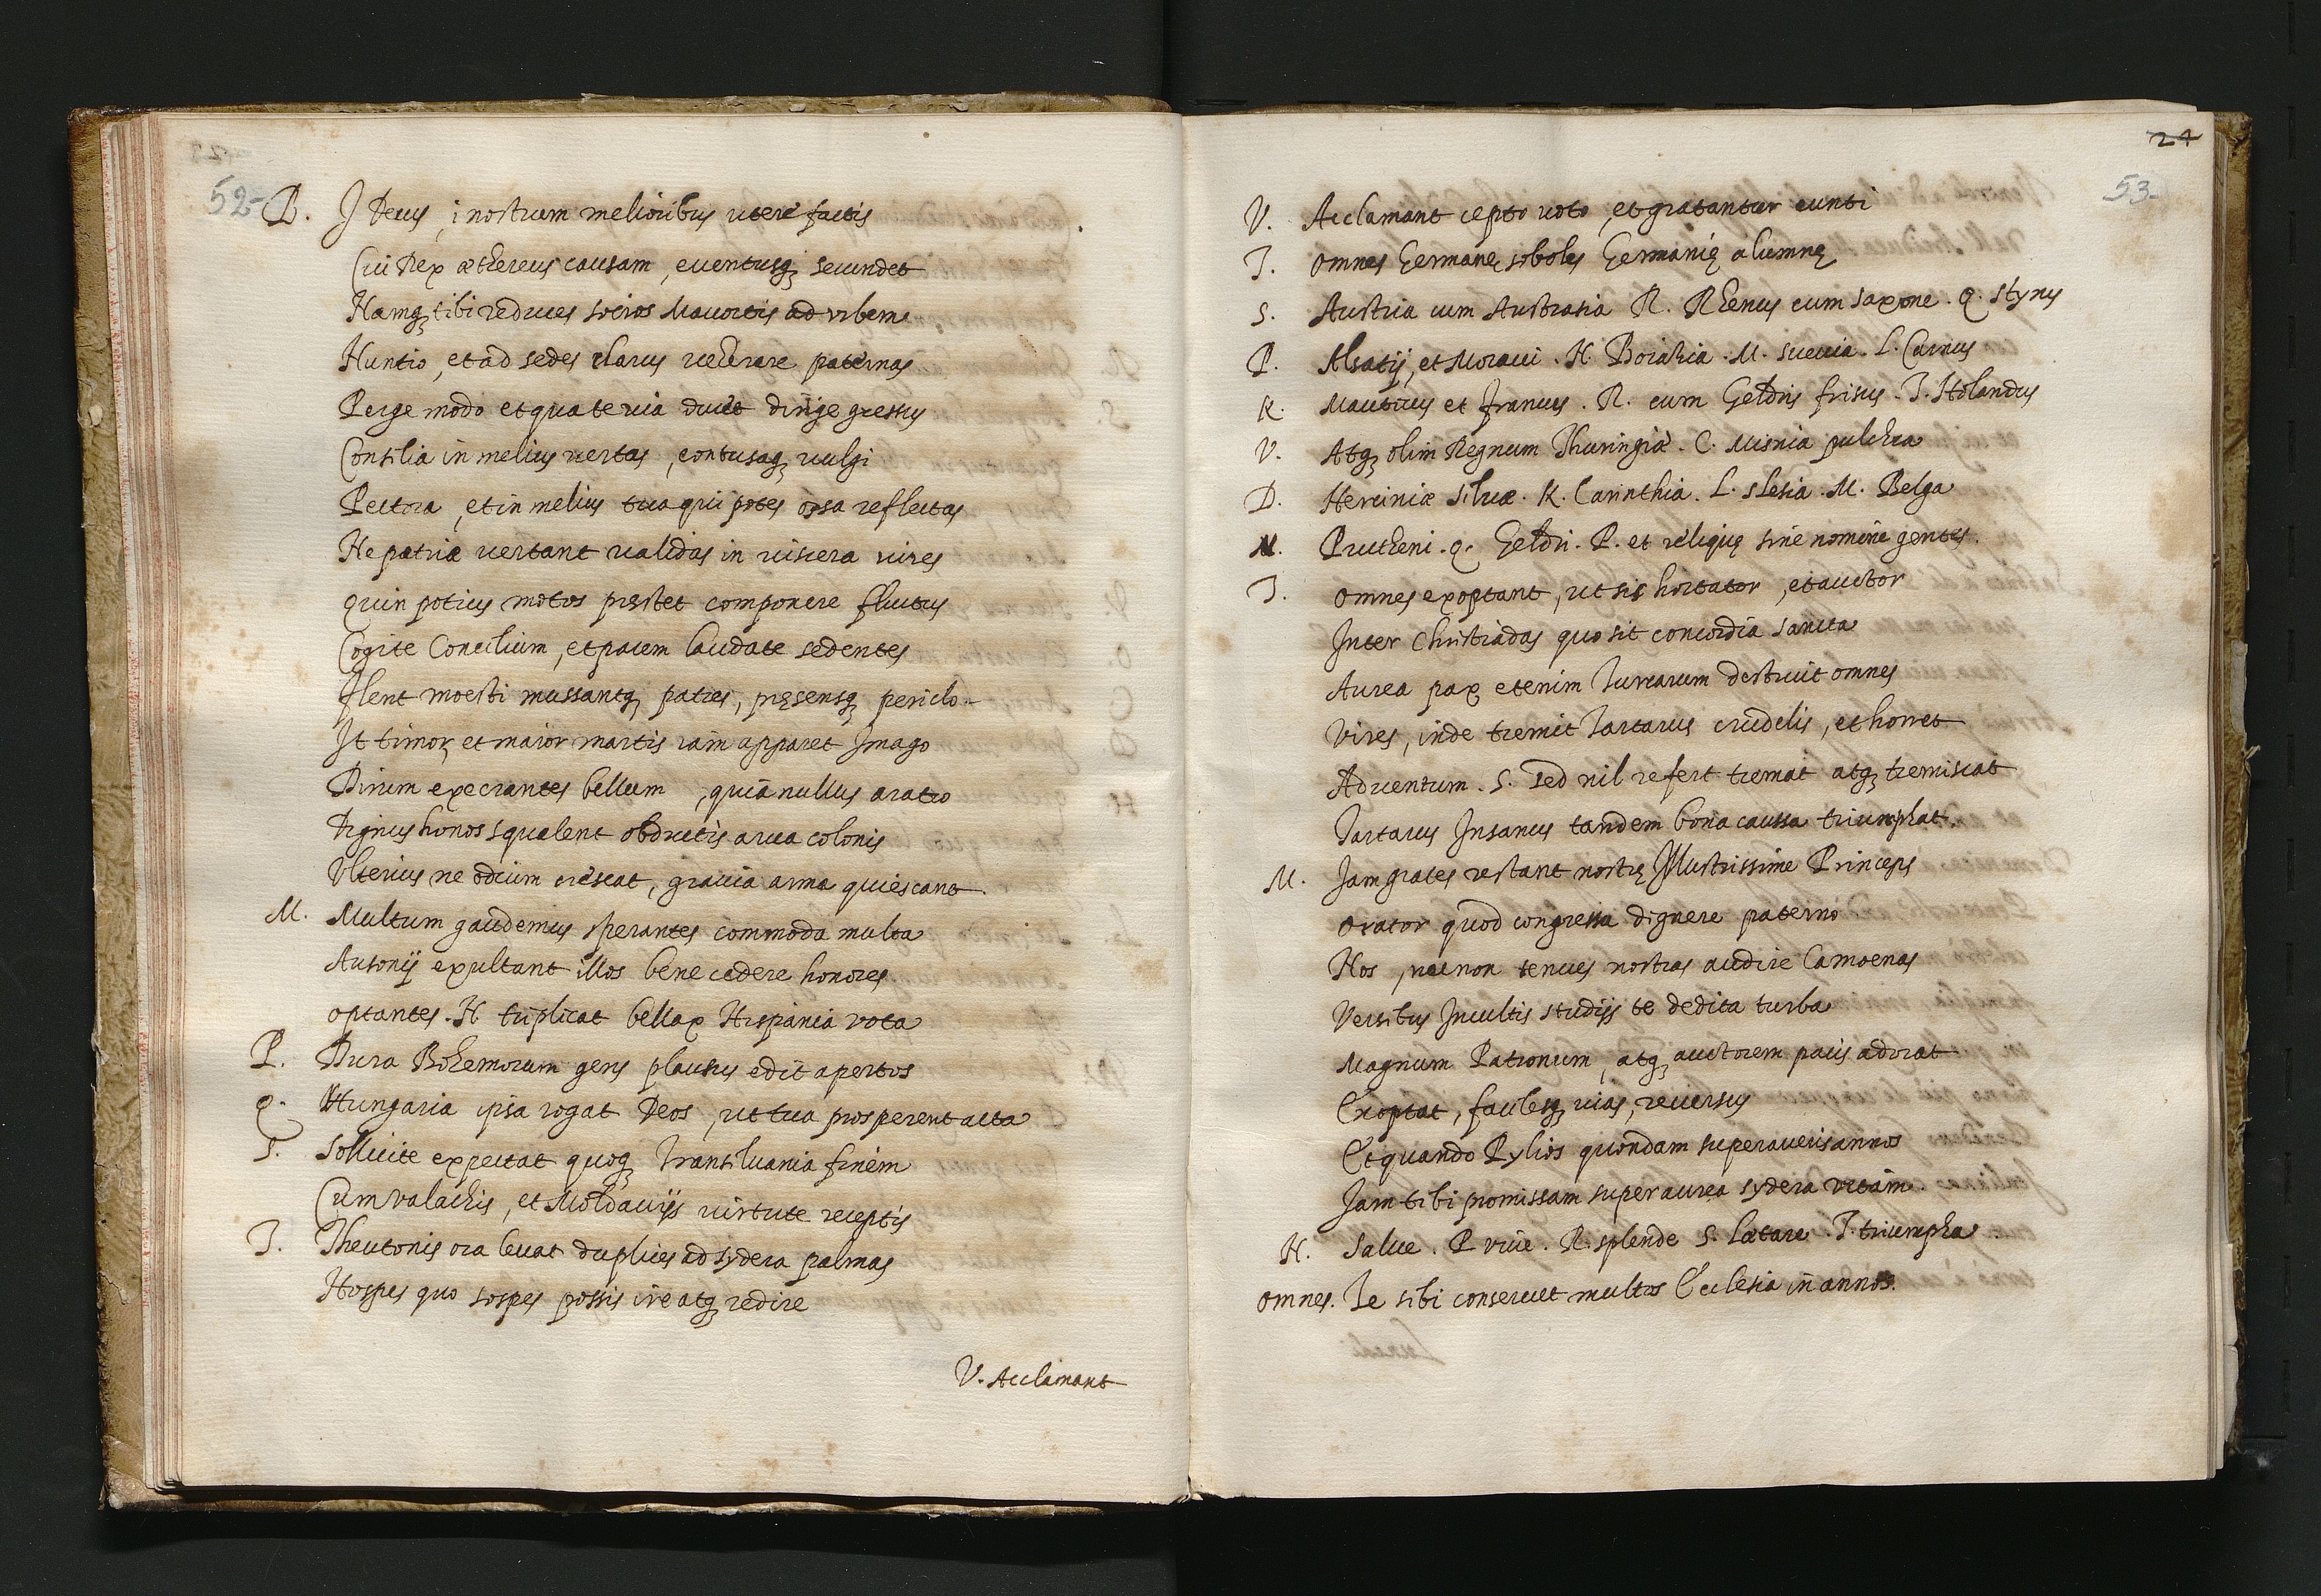 52
B. I Decus, i nostrum melioribus utere factis
Cui Rex æthereus causam, euentusq; secundet
Namq; tibi reduces socios Mauortis ad urbem
Nuntio, et ad sedes clarus remeare paternas
Perge modo et qua te uia ducit dirige gressus
Consilia in melius uertas, contusaq; uulgi
Pectora, et in melius tua qui potes orsa reflectas
Ne patriæ uertant ualidas in uiscera uires
quin potius motos pręstet componere fluctus
Cogite Concilium, et pacem laudate sedentes
Flent moesti mussantq; patres, pręsensq; periclo
It timor, et maior martis iam apparet Imago
Dirum execrantes bellum, quia nullus aratro
Dignus honos squalent obductis arua colonis
Vlterius ne odium crescat, grauia arma quiescant.
M. Multum gaudemus sperantes commoda multa
Ausonij exultant illos bene cedere honores
optantes. N. triplicat bellax Hispania vota
P. Dura Bohemorum gens plausus edit apertos
Q. Hungaria ipsa rogat Deos, ut tua prosperent acta
S. Sollicite expectat quoq; Transiluania finem
Cum valachis, et Moldauijs uirtute receptis
T. Theutonis ora leuat duplices ad sydera palmas
Hospes quo sospes possis ire atq; redire
V. Acclamant
24
53
V. Acclamant cepto uoto, et gratantur eunti
T. omnes Germanę soboles Germanię alumnę
S. Austria cum Austrasia R. Rhenus cum saxone. Q. stynus
P. Alsatij, et Moraui. N. Boiaria. M. sueuia. L. Carnus
K. Mauticus et francus. R. cum Geldris frisus. T. Holandus
V. Atq; olim Regnum Thuringia. C. Misnia pulchra
D. Herciniæ siluæ. K. Carinthia. L. slesia. M. Belga
N. Prutheni. Q. Geldri. P. et reliquę sine nomine gentes.
T. omnes exoptant, ut sis hortator, et auctor
Inter Christiadas quo sit concordia sancta
Aurea pax etenim Turcarum destruit omnes
Vires, inde tremit Tartarus crudelis, et horret
Aduentum. S. sed nil refert tremat atq; tremiscat
Tartarus Insanus tandem bona caussa triumphat.
M. Jam grates restant nostrę Illustrissime Princeps
orator quod congressu dignere paterno
Nos, necnon tenues nostras audire Camoenas
Versibus Incultis studijs te dedita turba
Magnum Patronum, atq; auctorem pacis adorat
Exoptat, facilesq; uias, reuersus
Et quando Pylios quondam superaueris annos
Jam tibi promissam super aurea sydera vitam.
N. Salue. P. viue. R. splende S. Lætare. T. triumpha
omnes. Te sibi conseruet multos Ecclesia in annos.